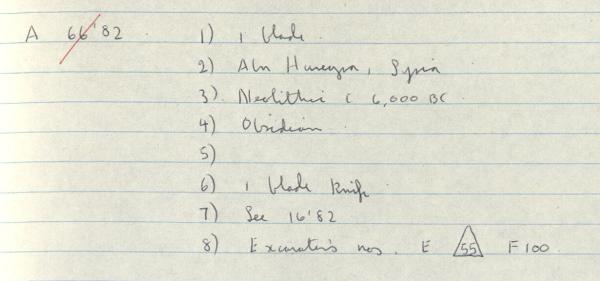 A 66'82 1) 1 blade.
2) Abu Hureyra, Syria
3) Neolithic c 6,000 BC.
4) Obsidian
5)
6) 1 blade knife
7) See 16'82
8) Excavator's nos. E 55 F100